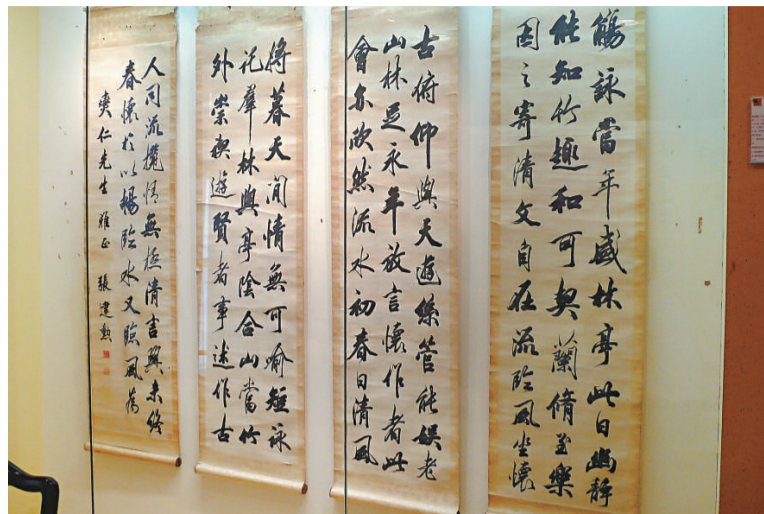 觴詠當年盛林亭此日幽靜
能知竹趣和可契蘭脩至樂
因之寄清文自在流臨風坐懷
古俯仰與天遊絲管能娛老
山林足永年放言懷作者此
會亦欣然流水初春日清風
將暮天閒情無可喻短詠
託羣林與亭陰合山當竹
外崇稧遊賢者事述作古
人同流攬情無極清言興未終
春懷於以暢臨水又臨風
仁先生 雅正 張建勳